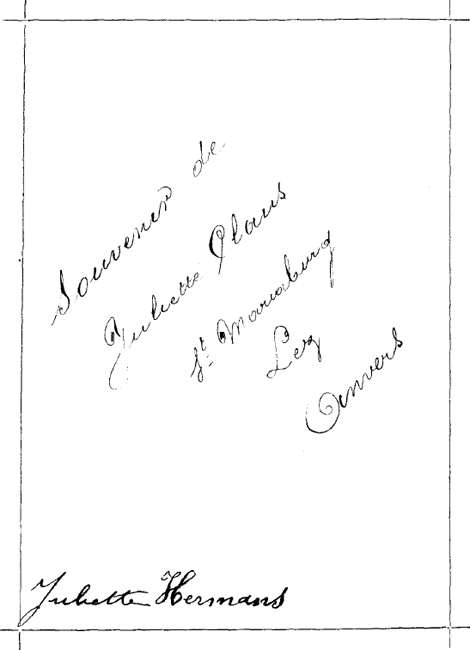 Souvenir de
Juliette Claus
St Mariaburg
Lez
Anvers
Juliette Hermans